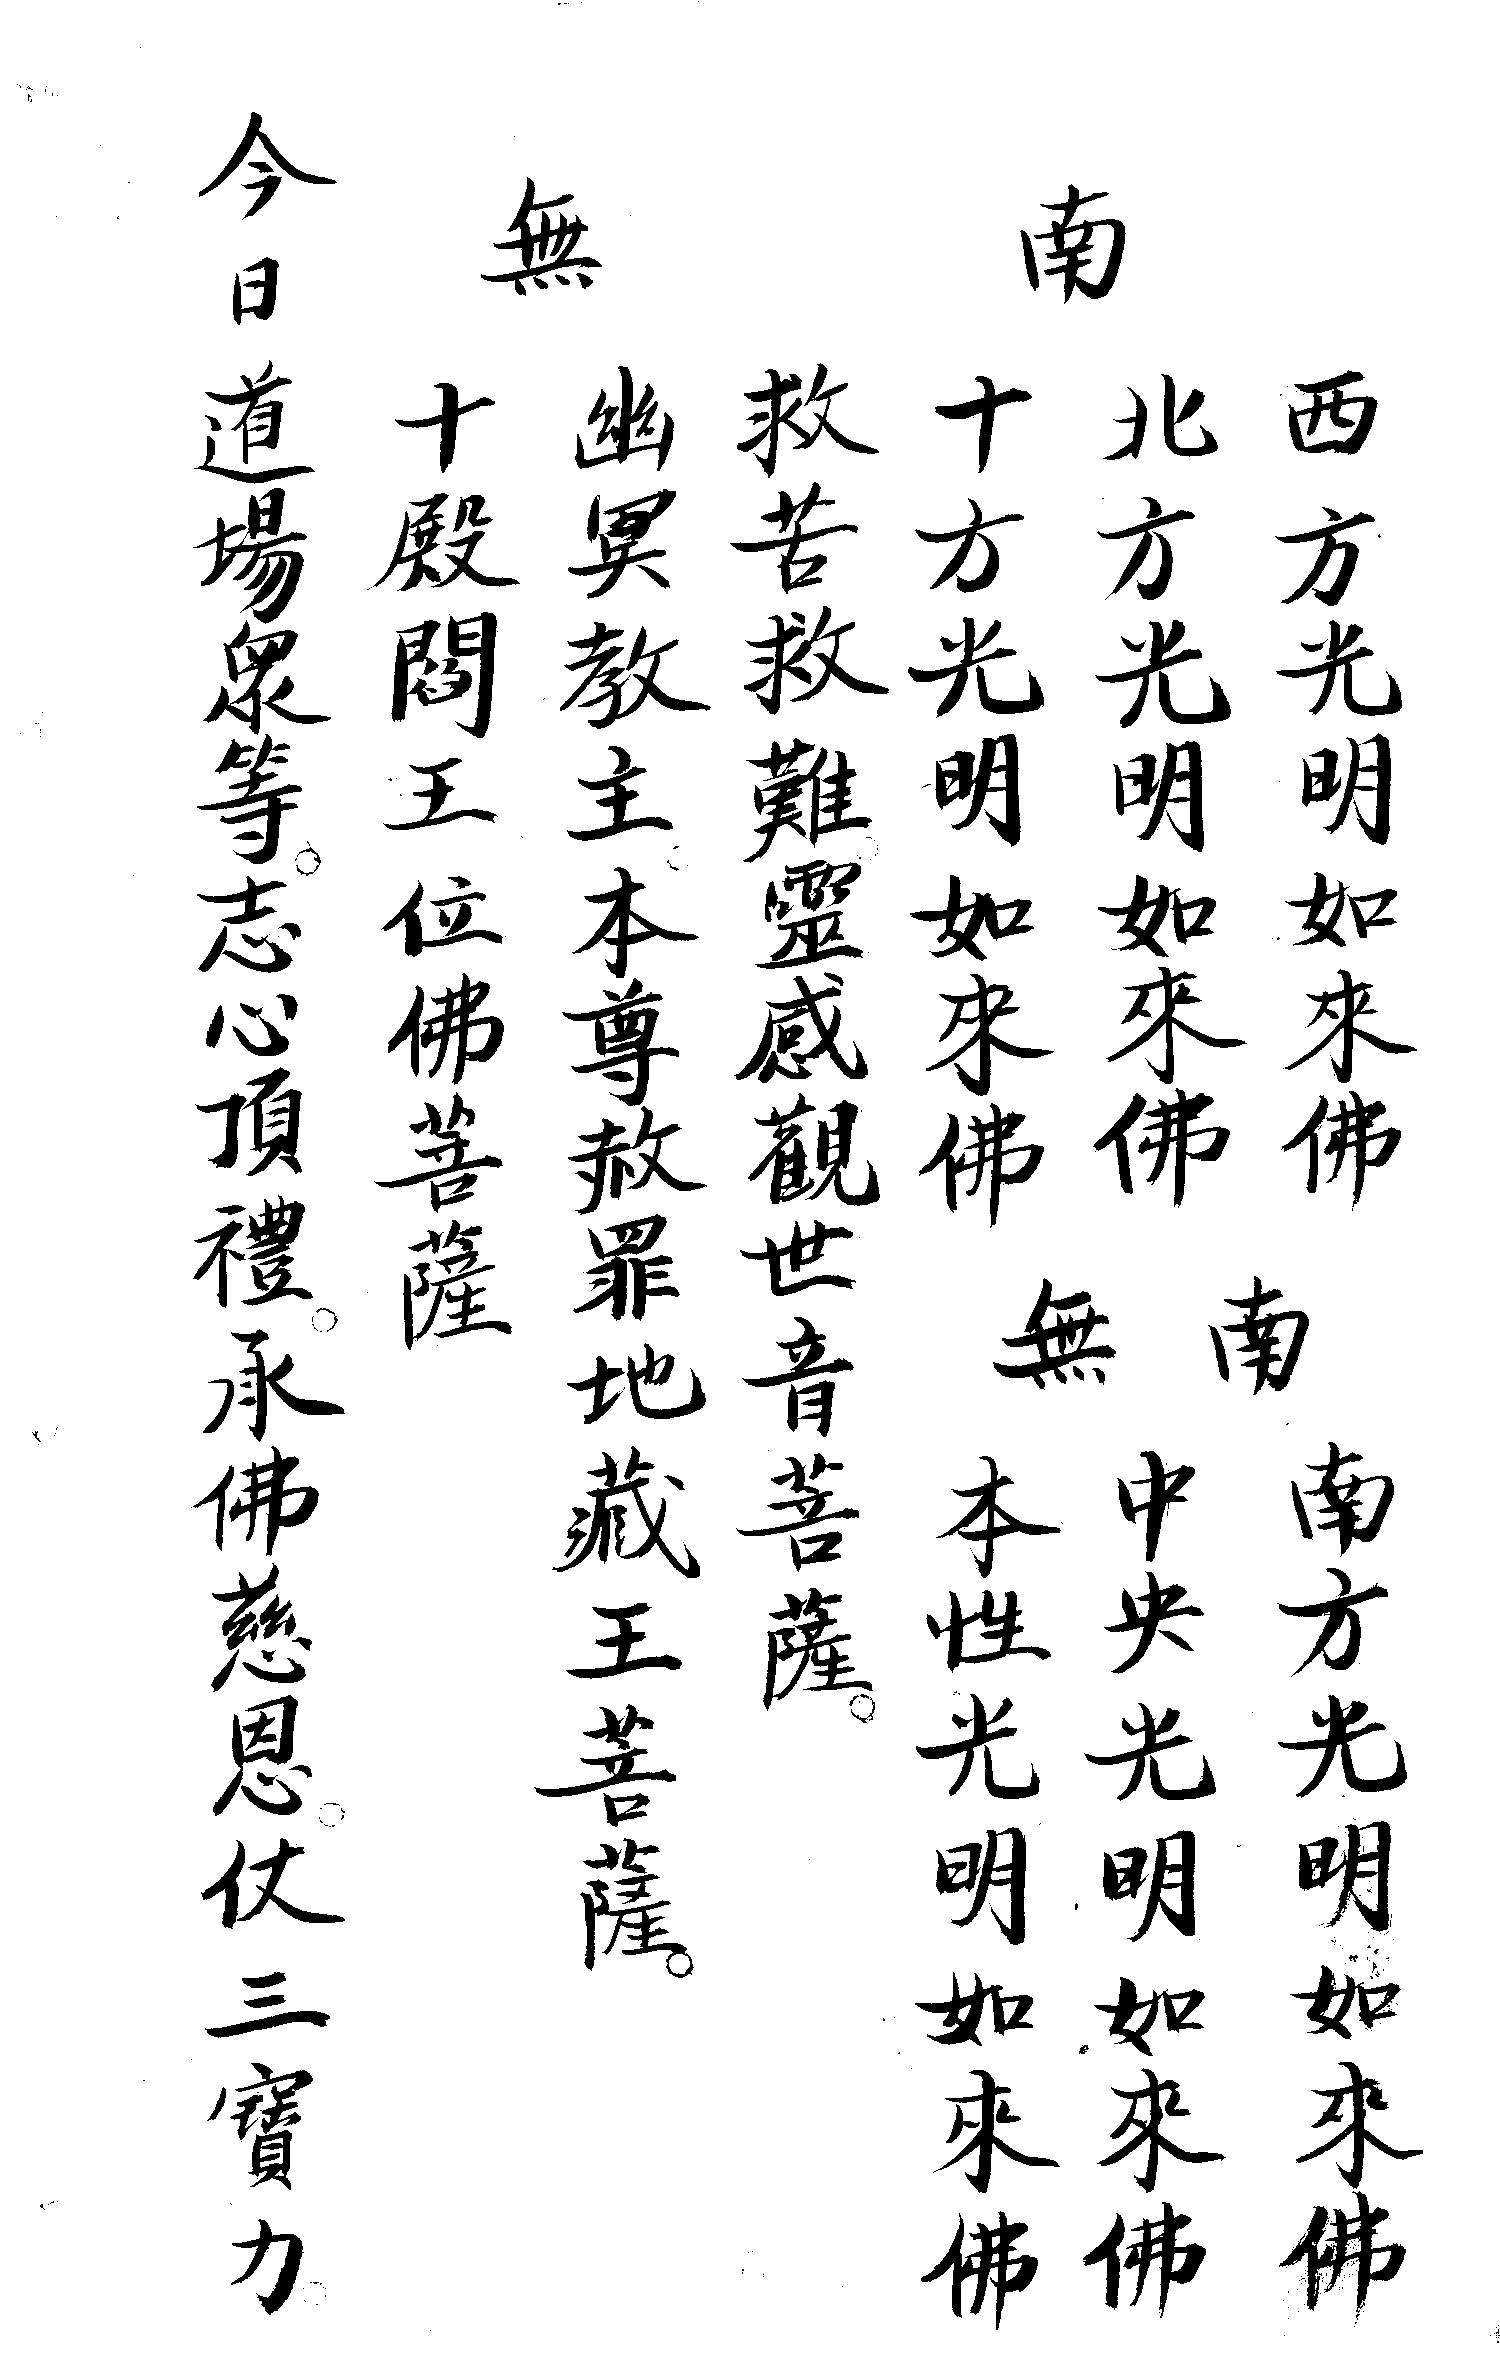 西方光明如來佛
南方光明如來佛
北方光明如來佛
中央光明如來佛
十方光明如來佛
本性光明如來佛
南無
南無
救苦救難靈感觀世音菩薩。
幽冥教主本尊赦罪地藏王菩薩。
十殿閻王位佛菩薩
今日道場衆等。志心頂禮。承佛慈恩。仗三寶力。